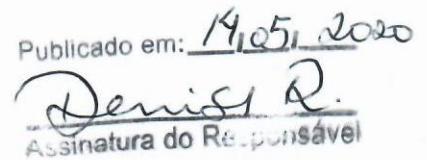 Publicado em: 14,05, 2020
Denise R.
Assinatura do Responsável